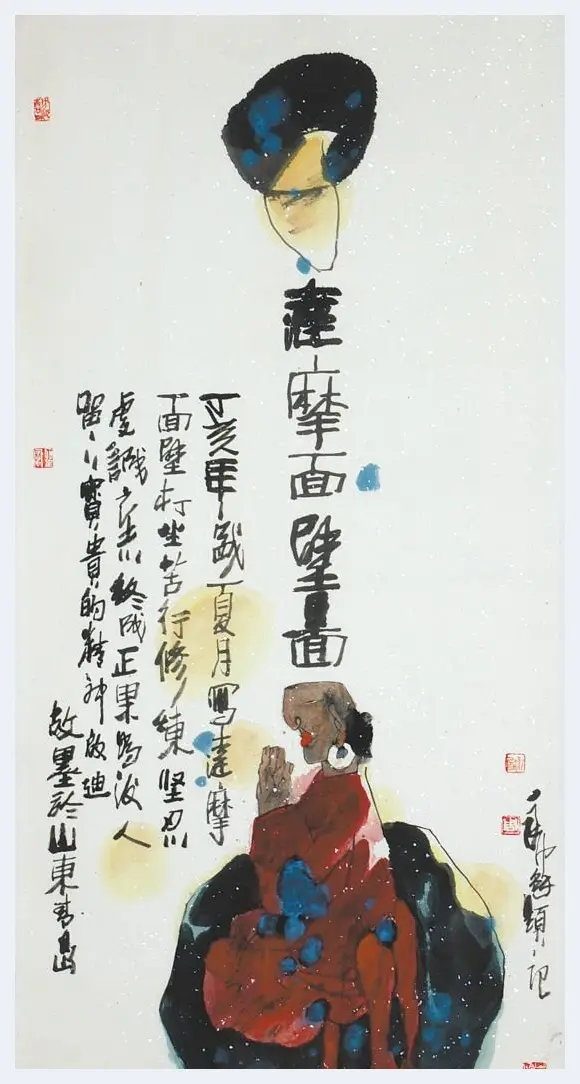 達摩面壁圖
丁亥年夏月寫達摩
面壁打坐苦行修練坚忍
虔誠終成正果為後人
留下寶貴的精神啟迪
故墨於山東青島